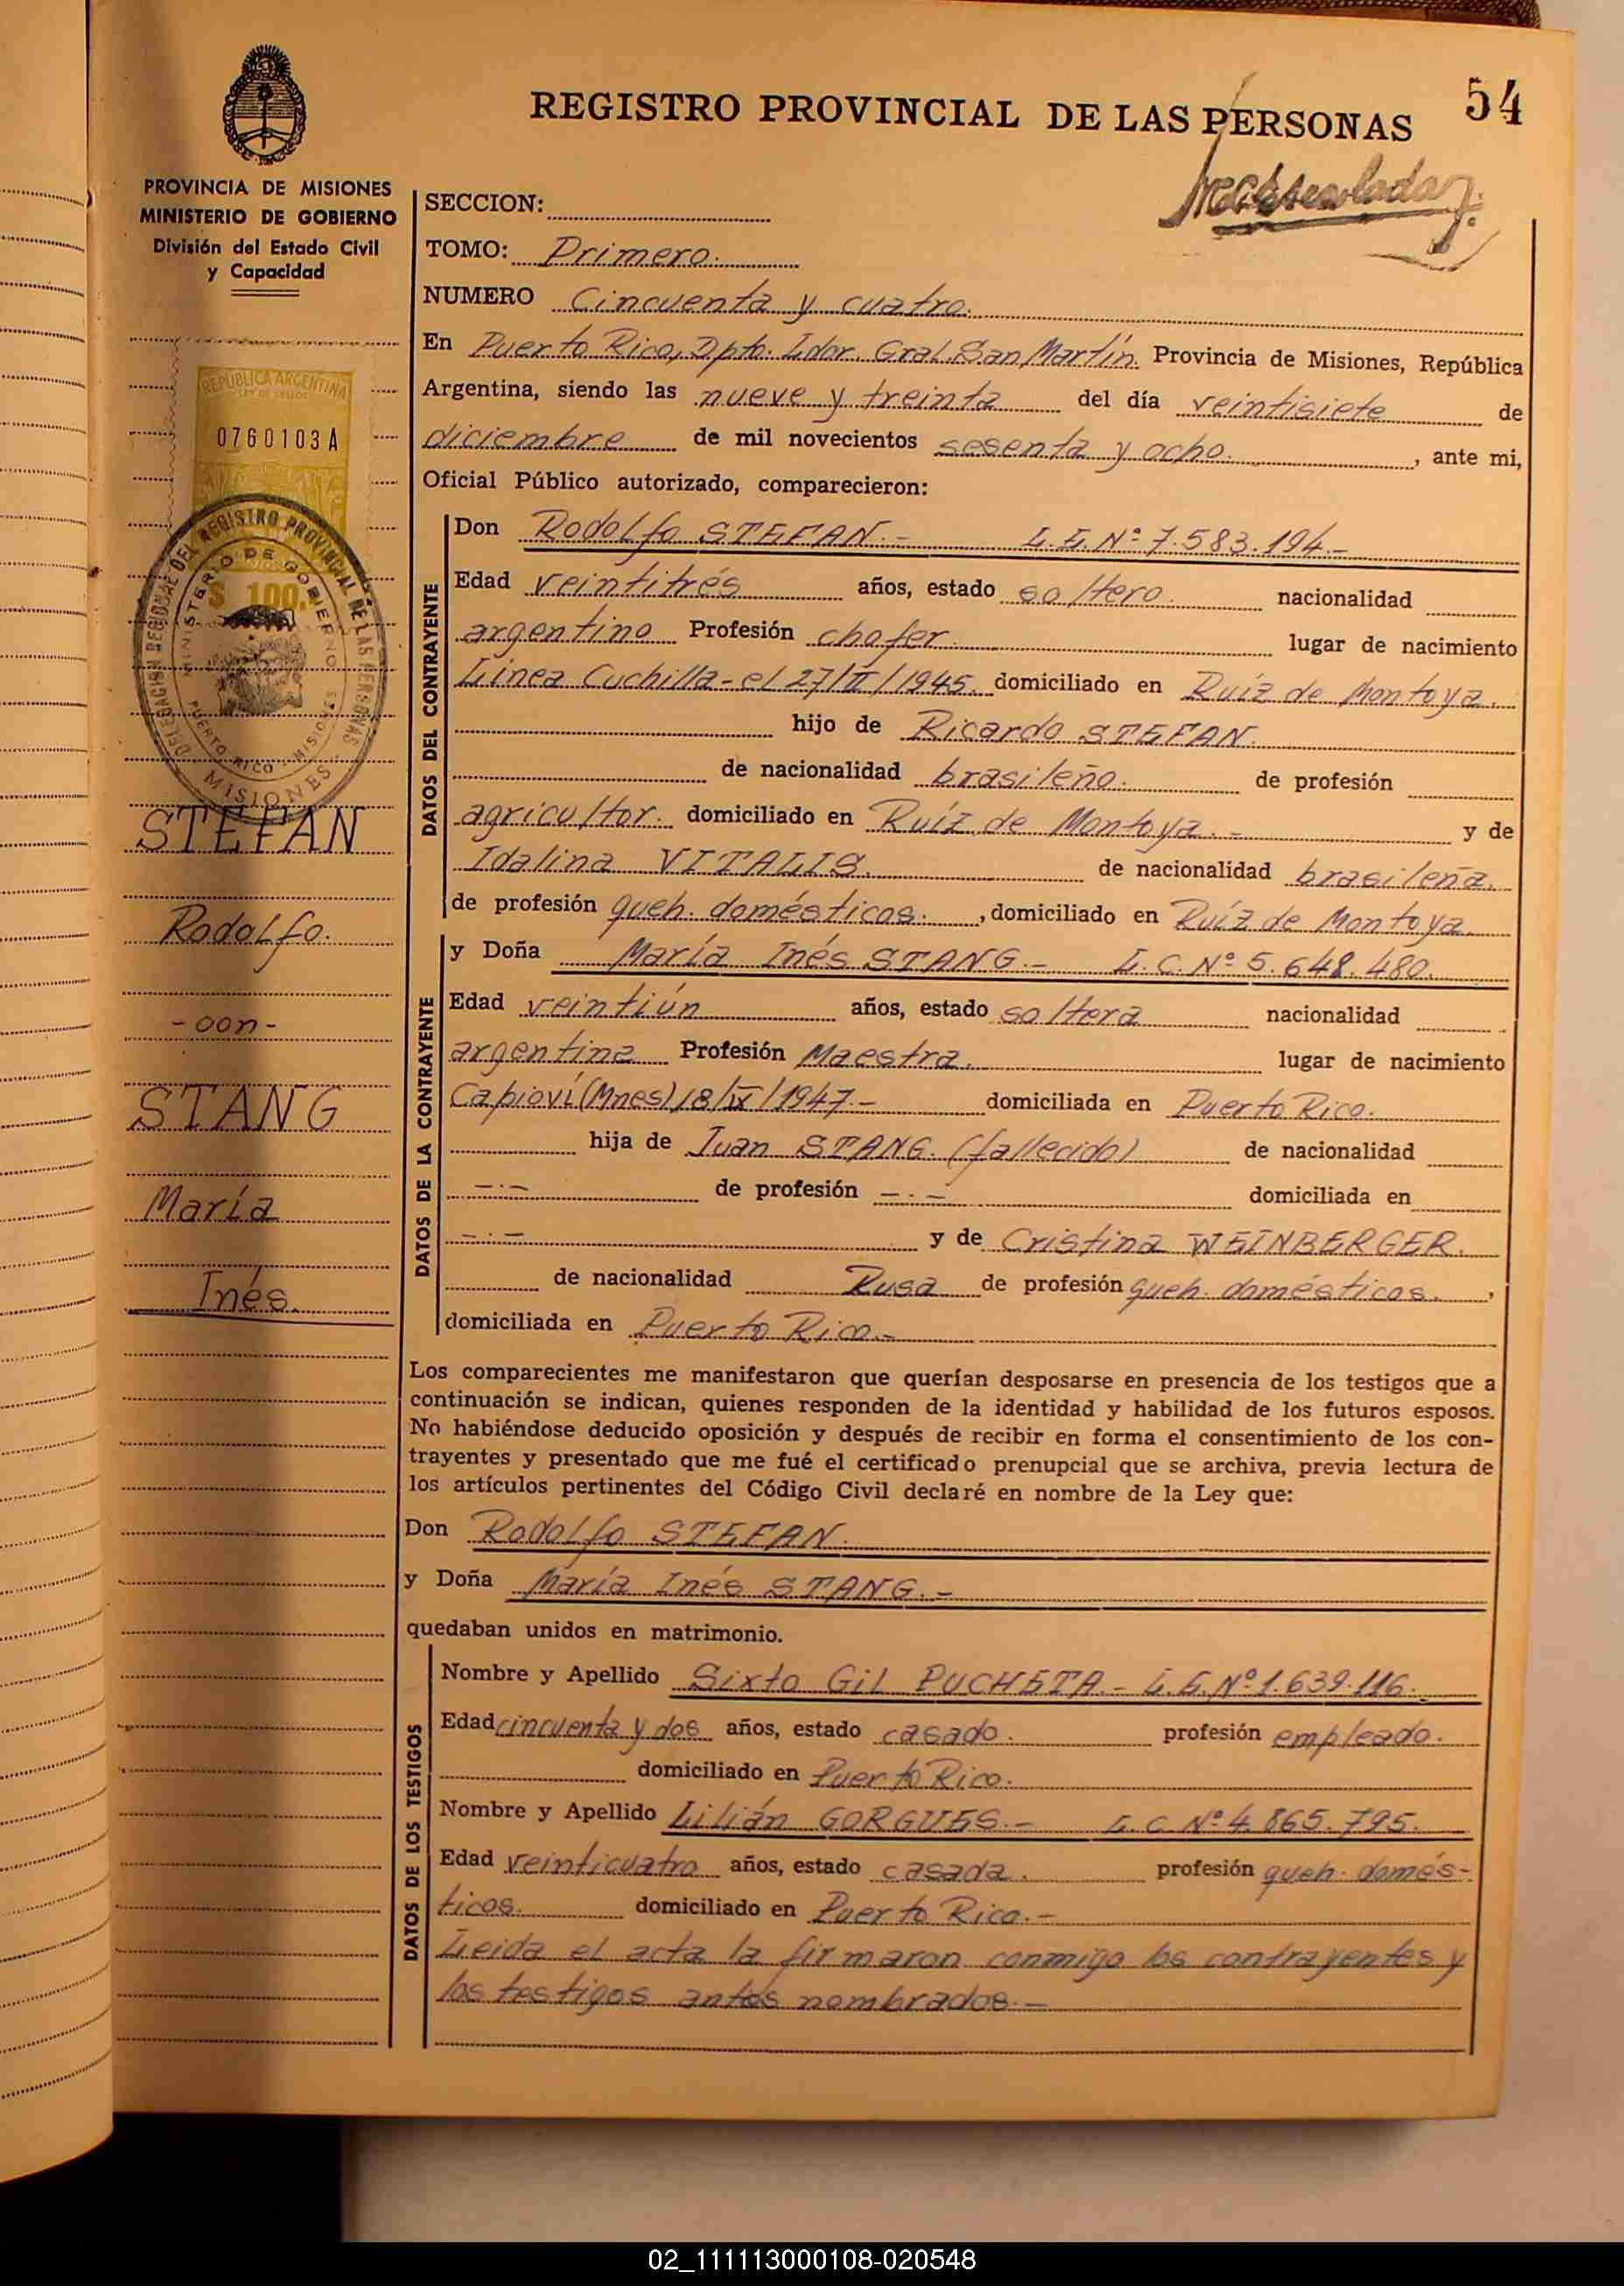 54
REGISTRO PROVINCIAL DE LAS PERSONAS
PROVINCIA DE MISIONES
MINISTERIO DE GOBIERNO
División del Estado Civil
y Capacidad
SECCION:
TOMO: Primero.
NUMERO Cincuenta y cuatro.
En Puerto Rico, Dpto. Ldor. Gral. San Martín. Provincia de Misiones, República
Argentina, siendo las nueve y treinta del día veintisiete de
diciembre de mil novecientos sesenta y ocho. , ante mi,
Oficial Público autorizado, comparecieron:
REPUBLICA ARGENTINA
LEY DE SELLOS
0760103A
$ 100.
DELEGACION REGIONAL DEL REGISTRO PROVINCIAL DE LAS PERSONAS
MINISTERIO DE GOBIERNO
PUERTO RICO - MISIONES
MISIONES
STEFAN
Rodolfo.
-con-
STANG
María
Inés.
DATOS DEL CONTRAYENTE
Don Rodolfo STEFAN.- L.E.Nº 7.583.194.-
Edad veintitrés años, estado soltero. nacionalidad
argentino Profesión chofer. lugar de nacimiento
Línea Cuchilla-el 27/II/1945. domiciliado en Ruíz de Montoya.
hijo de Ricardo STEFAN.
de nacionalidad brasileño. de profesión
agricultor. domiciliado en Ruíz de Montoya.- y de
Idalina VITALIS. de nacionalidad brasileña.
de profesión queh. domésticos. , domiciliado en Ruíz de Montoya.
DATOS DE LA CONTRAYENTE
y Doña María Inés STANG.- L.C.Nº 5.648.480.
Edad veintiún años, estado soltera nacionalidad
argentina Profesión Maestra. lugar de nacimiento
Capioví (Mnes) 18/IX/1947.- domiciliada en Puerto Rico.
hija de Juan STANG. (fallecido) de nacionalidad
-.- de profesión -.- domiciliada en
-.- y de Cristina WEINBERGER.
de nacionalidad Rusa de profesión queh. domésticos. ,
domiciliada en Puerto Rico.-
Los comparecientes me manifestaron que querían desposarse en presencia de los testigos que a
continuación se indican, quienes responden de la identidad y habilidad de los futuros esposos.
No habiéndose deducido oposición y después de recibir en forma el consentimiento de los con-
trayentes y presentado que me fué el certificado prenupcial que se archiva, previa lectura de
los artículos pertinentes del Código Civil declaré en nombre de la Ley que:
Don Rodolfo STEFAN.
y Doña María Inés STANG.-
quedaban unidos en matrimonio.
DATOS DE LOS TESTIGOS
Nombre y Apellido Sixto Gil PUCHETA.- L.E.Nº 1.639.116.
Edad cincuenta y dos años, estado casado. profesión empleado.
domiciliado en Puerto Rico.
Nombre y Apellido Lilián GORGUES.- L.C.Nº 4.865.795.
Edad veinticuatro años, estado casada. profesión queh. domés-
ticos. domiciliado en Puerto Rico.-
Leida el acta la firmaron conmigo los contrayentes y
los testigos antes nombrados.-
02_111113000108-020548